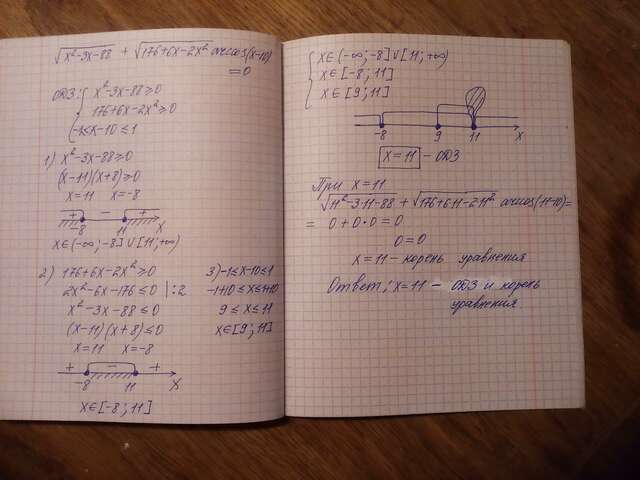 √x²-3x-88 + √176+6x-2x² arccos(x-10)
= 0
ОДЗ: { x²-3x-88≥0
176+6x-2x²≥0
-1≤x-10≤1
1) x²-3x-88≥0
(x-11)(x+8)≥0
x=11 x=-8
+ - +
-8 11 x
x∈(-∞;-8]∪[11;+∞)
2) 176+6x-2x²≥0
2x²-6x-176≤0 |:2
x²-3x-88≤0
(x-11)(x+8)≤0
x=11 x=-8
+ - +
-8 11 x
x∈[-8;11]
3) -1≤x-10≤1
-1+10≤x≤1+10
9≤x≤11
x∈[9;11]
{ x∈(-∞;-8]∪[11;+∞)
x∈[-8;11]
x∈[9;11]
-8 9 11 x
x=11 - ОДЗ
При x=11
√11²-3·11-88 + √176+6·11-2·11² arccos(11-10)=
= 0+0·0=0
0=0
x=11 - корень уравнения
Ответ: x=11 - ОДЗ и корень
уравнения.